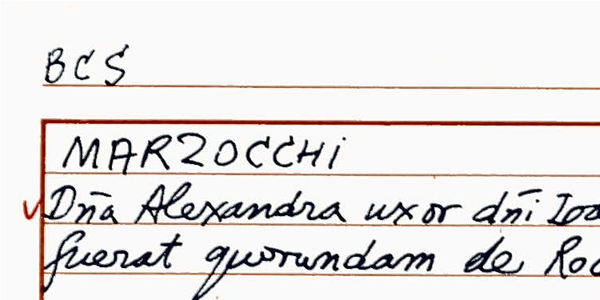 BCS
MARZOCCHI
Dña Alexandra uxor dñi Ioa
fuerat quorundam de Roc